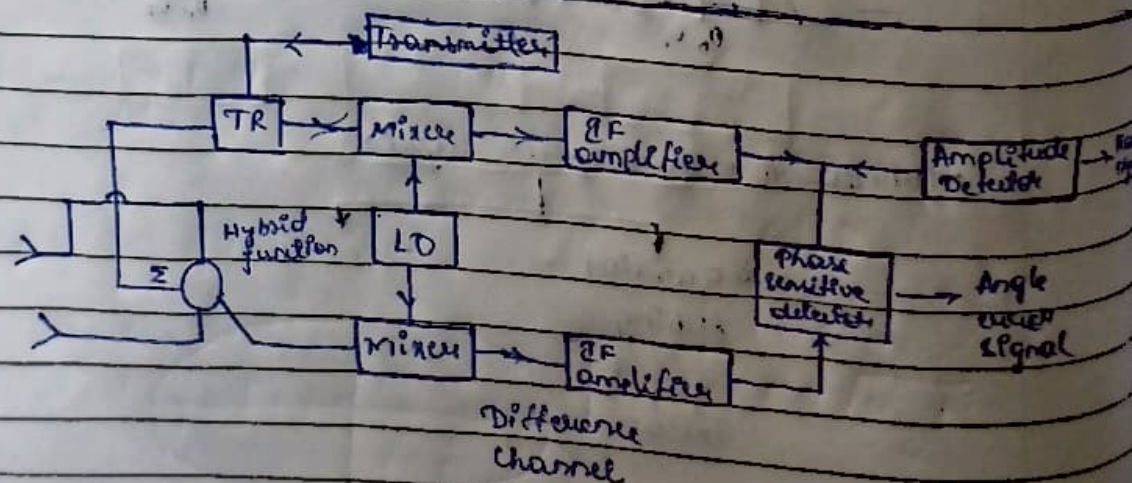 Transmitter
TR
Mixer
IF
amplifier
Amplitude
Detector
Hybrid
function
LO
Σ
Phase
sensitive
detector
Angle
error
signal
Mixer
IF
amplifier
Difference
Channel